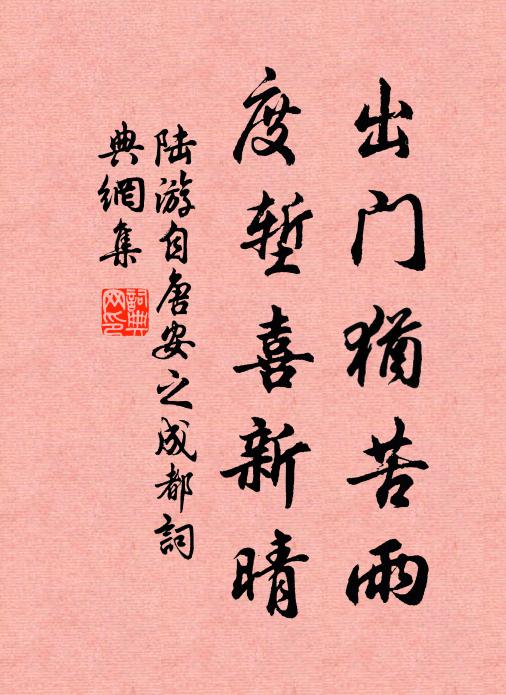 出门犹苦雨
度堑喜新晴
陆游自唐安之成都词
典網集
詞典网印